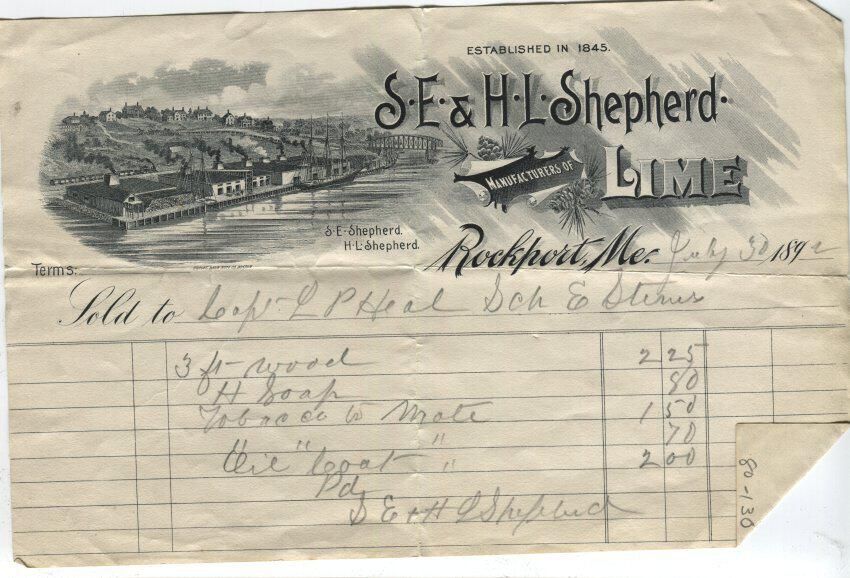 ESTABLISHED IN 1845.
S·E·& H·L·Shepherd·
MANUFACTURERS OF
LIME
S·E·Shepherd.
H·L·Shepherd.
Rockport, Me. July 30 1892
Terms:
Sold to Capt L P Heal Sch E
3 ft wood 2 25
Soap 80
Tobacco to Mate 1 50
" " 70
Oil Coat " 2 00
Pd
S E & H L Shepherd
80-130